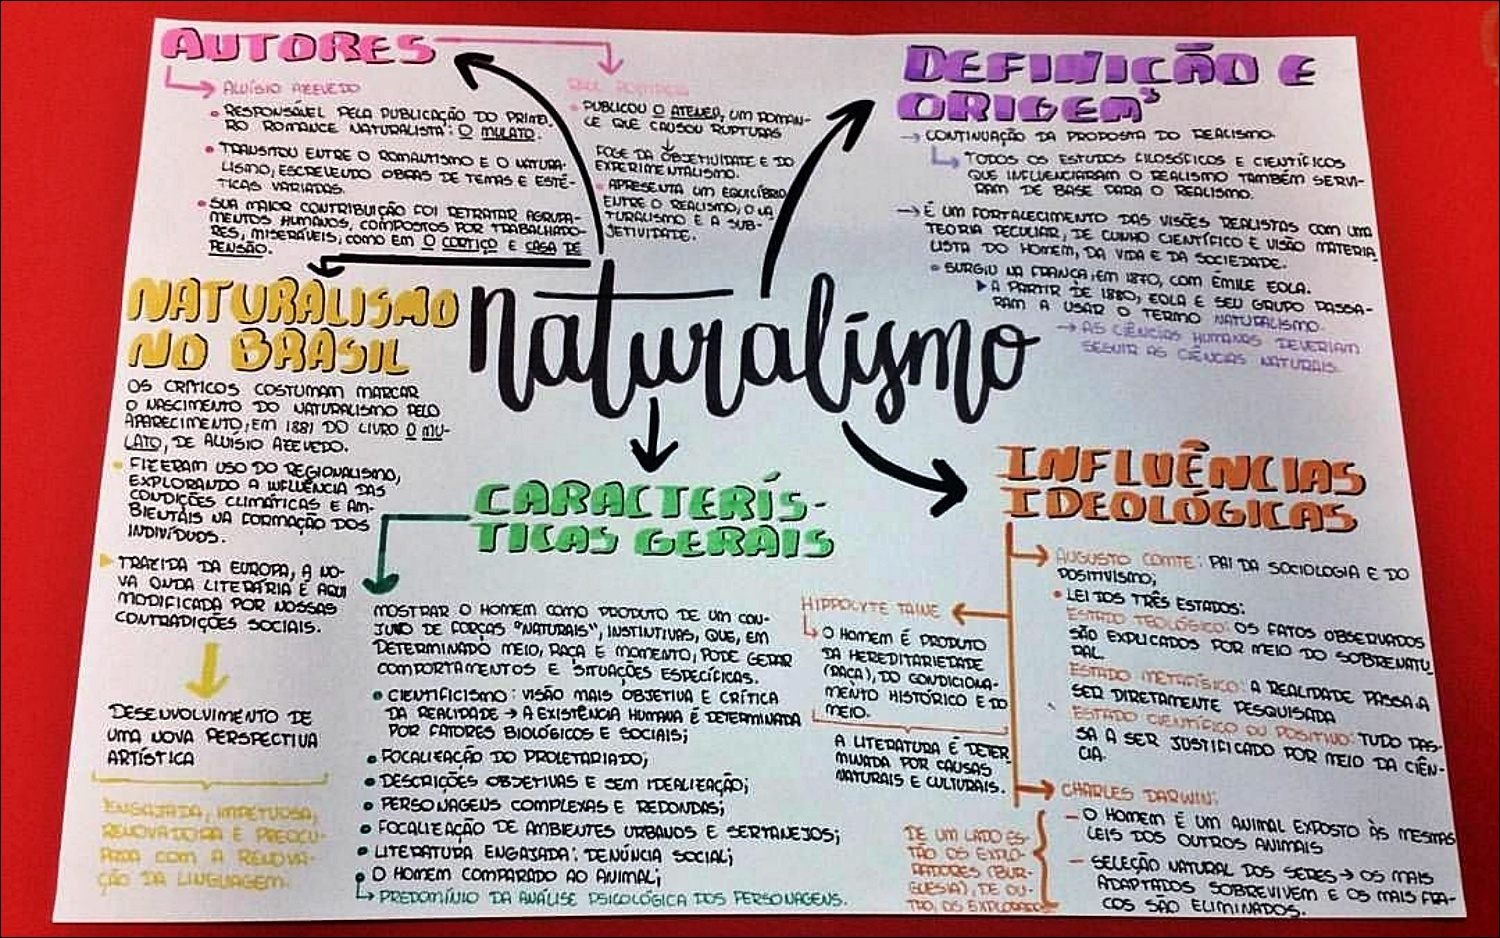 AUTORES
ALUÍSIO AZEVEDO
• RESPONSÁVEL PELA PUBLICAÇÃO DO PRIMEI-
RO ROMANCE NATURALISTA: O MULATO.
• TRANSITOU ENTRE O ROMANTISMO E O NATURA-
LISMO, ESCREVENDO OBRAS DE TEMAS E ESTÉ-
TICAS VARIADAS.
• SUA MAIOR CONTRIBUIÇÃO FOI RETRATAR AGRUPA-
MENTOS HUMANOS, COMPOSTOS POR TRABALHADO-
RES, MISERÁVEIS, COMO EM O CORTIÇO E CASA DE
PENSÃO.
RAUL POMPEIA
• PUBLICOU O ATENEU, UM ROMAN-
CE QUE CAUSOU RUPTURAS
FOGE DA OBJETIVIDADE E DO
EXPERIMENTALISMO.
• APRESENTA UM EQUILÍBRIO
ENTRE O REALISMO, O NA
TURALISMO E A SUB-
JETIVIDADE.
DEFINIÇÃO E
ORIGEM
→ CONTINUAÇÃO DA PROPOSTA DO REALISMO.
TODOS OS ESTUDOS FILOSÓFICOS E CIENTÍFICOS
QUE INFLUENCIARAM O REALISMO TAMBÉM SERVI-
RAM DE BASE PARA O REALISMO.
→ É UM FORTALECIMENTO DAS VISÕES REALISTAS COM UMA
TEORIA PECULIAR, DE CUNHO CIENTÍFICO E VISÃO MATERIA
LISTA DO HOMEM, DA VIDA E DA SOCIEDADE.
• SURGIU NA FRANÇA, EM 1870, COM ÉMILE ZOLA.
▶ A PARTIR DE 1880, ZOLA E SEU GRUPO PASSA-
RAM A USAR O TERMO NATURALISMO.
→ AS CIÊNCIAS HUMANAS DEVERIAM
SEGUIR AS CIÊNCIAS NATURAIS.
naturalismo
NATURALISMO
NO BRASIL
OS CRÍTICOS COSTUMAM MARCAR
O NASCIMENTO DO NATURALISMO PELO
APARECIMENTO, EM 1881 DO LIVRO O MU-
LATO, DE ALUÍSIO AZEVEDO.
• FIZERAM USO DO REGIONALISMO,
EXPLORANDO A INFLUÊNCIA DAS
CONDIÇÕES CLIMÁTICAS E AM-
BIENTAIS NA FORMAÇÃO DOS
INDIVÍDUOS.
▶ TRAZIDA DA EUROPA, A NO-
VA ONDA LITERÁRIA É AQUI
MODIFICADA POR NOSSAS
CONTRADIÇÕES SOCIAIS.
DESENVOLVIMENTO DE
UMA NOVA PERSPECTIVA
ARTÍSTICA
ENGAJADA, IMPETUOSA,
RENOVADORA E PREOCU-
PADA COM A RENOVA-
ÇÃO DA LINGUAGEM.
CARACTERÍS-
TICAS GERAIS
MOSTRAR O HOMEM COMO PRODUTO DE UM CON-
JUNTO DE FORÇAS "NATURAIS", INSTINTIVAS, QUE, EM
DETERMINADO MEIO, RAÇA E MOMENTO, PODE GERAR
COMPORTAMENTOS E SITUAÇÕES ESPECÍFICAS.
• CIENTIFICISMO: VISÃO MAIS OBJETIVA E CRÍTICA
DA REALIDADE → A EXISTÊNCIA HUMANA É DETERMINADA
POR FATORES BIOLÓGICOS E SOCIAIS;
• FOCALIZAÇÃO DO PROLETARIADO;
• DESCRIÇÕES OBJETIVAS E SEM IDEALIZAÇÃO;
• PERSONAGENS COMPLEXAS E REDONDAS;
• FOCALIZAÇÃO DE AMBIENTES URBANOS E SERTANEJOS;
• LITERATURA ENGAJADA: DENÚNCIA SOCIAL;
• O HOMEM COMPARADO AO ANIMAL;
PREDOMÍNIO DA ANÁLISE PSICOLÓGICA DOS PERSONAGENS.
INFLUÊNCIAS
IDEOLÓGICAS
AUGUSTO COMTE: PAI DA SOCIOLOGIA E DO
POSITIVISMO;
• LEI DOS TRÊS ESTADOS:
ESTADO TEOLÓGICO: OS FATOS OBSERVADOS
SÃO EXPLICADOS POR MEIO DO SOBRENATU
RAL.
ESTADO METAFÍSICO: A REALIDADE PASSA A
SER DIRETAMENTE PESQUISADA
ESTADO CIENTÍFICO OU POSITIVO: TUDO PAS-
SA A SER JUSTIFICADO POR MEIO DA CIÊN-
CIA.
HIPPOLYTE TAINE
O HOMEM É PRODUTO
DA HEREDITARIEDADE
(RAÇA), DO CONDICIONA-
MENTO HISTÓRICO E DO
MEIO.
A LITERATURA É DETER
MINADA POR CAUSAS
NATURAIS E CULTURAIS.
CHARLES DARWIN:
– O HOMEM É UM ANIMAL EXPOSTO ÀS MESMAS
LEIS DOS OUTROS ANIMAIS
– SELEÇÃO NATURAL DOS SERES → OS MAIS
ADAPTADOS SOBREVIVEM E OS MAIS FRA-
COS SÃO ELIMINADOS.
DE UM LADO ES-
TÃO OS EXPLO-
RADORES (BUR-
GUESIA), DE OU-
TRO, OS EXPLORADOS